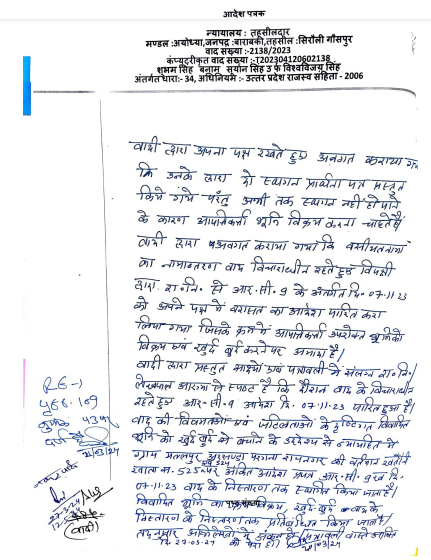 आदेश पत्रक
न्यायालय : तहसीलदार
मण्डल :अयोध्या,जनपद :बाराबंकी,तहसील :सिरौली गौसपुर
वाद संख्या :-2138/2023
कंप्यूटरीकृत वाद संख्या :-T202304120602138
शुभम सिंह बनाम सुयोग सिंह उर्फ विश्वविजय सिंह
अंतर्गत धारा:- 34, अधिनियम :- उत्तर प्रदेश राजस्व संहिता - 2006
वादी द्वारा अपना पक्ष रखते हुए अवगत कराया गया
कि उनके द्वारा दो स्थगन प्रार्थना पत्र प्रस्तुत
किये गये परंतु अभी तक स्थगन नहीं हो पाने
के कारण आपत्तिकर्ता भूमि विक्रय करना चाहते हैं
वादी द्वारा अवगत कराया गया कि वसीयतनामा
का नामान्तरण वाद विचाराधीन रहते हुए विपक्षी
द्वारा रा.नि. से आर.सी. 9 के अंतर्गत दि. 07.11.23
को अपने पक्ष में वरासत का आदेश पारित करा
लिया गया जिसके क्रम में आपत्तिकर्ता उपरोक्त भूमि को
विक्रय एवं खुर्द बुर्द करने पर आमादा है/
वादी द्वारा प्रस्तुत साक्ष्यों एवं पत्रावली में संलग्न रा.नि./
लेखपाल आख्या से स्पष्ट है कि दौरान वाद के विचाराधीन
रहते हुए आर-सी-9 आदेश दि. 07.11.23 पारित हुआ है/
वाद की विषमताओं एवं जटिलताओं के दृष्टिगत विवादित
भूमि को खुर्द बुर्द से बचाने के उद्देश्य से न्यायहित में
ग्राम परगना रामनगर की वर्तमान खतौनी
खाता न. 525 पर अंकित आदेश आर.सी. 9 दि.
07.11-23 वाद के निस्तारण तक स्थगित किया जाता है/
विवादित भूमि का खुर्द-बुर्द वाद के
निस्तारण तक प्रतिबंधित किया जाता है/
तद्नुसार अभिलेखों में अंकन हो/ वास्ते
दि. 27-03-24 को पेश हो/
R6-1
109
(वादी)